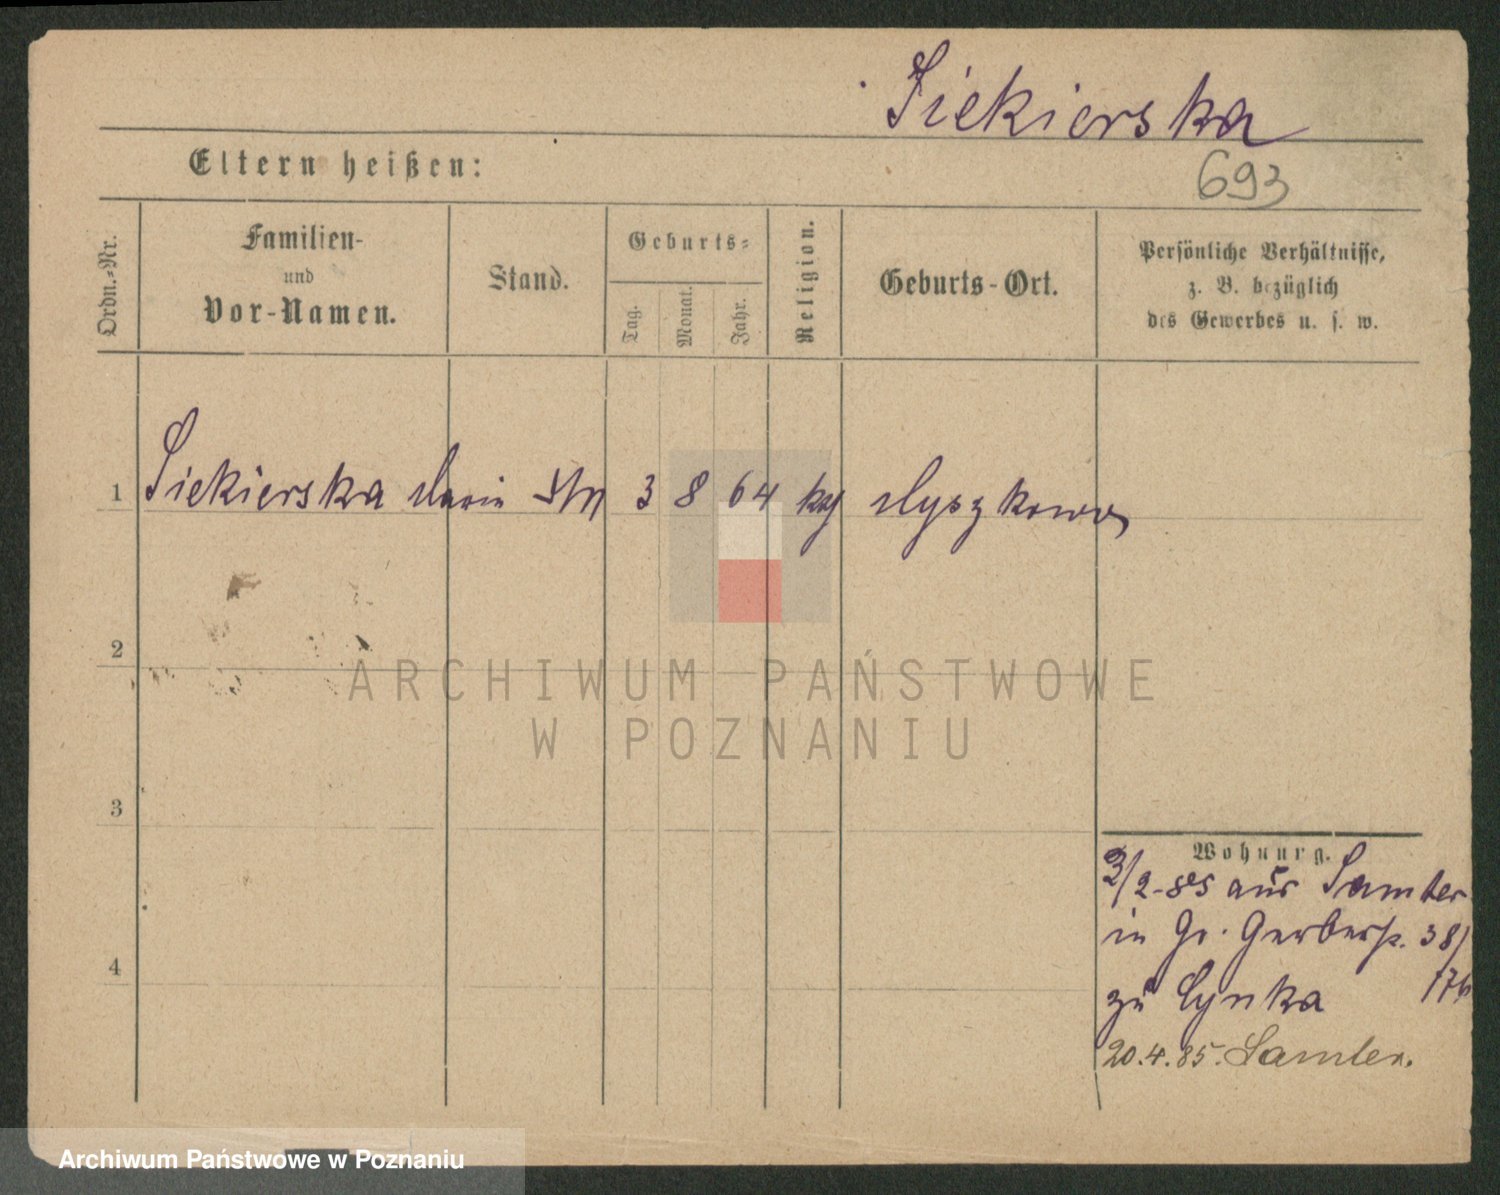 Siekierska
Eltern heißen:
693
Ordn.-Nr.
Familien-
und
Vor-Namen.
Stand.
Geburts-
Tag.
Monat.
Jahr.
Religion.
Geburts-Ort.
Persönliche Verhältnisse,
z. B. bezüglich
des Gewerbes u. s. w.
1 Siekierska Marie 3 8 64 Myszkowo
2
ARCHIWUM PAŃSTWOWE
W POZNANIU
3
Wohnung.
3/2-85 aus Samter
in Gr. Gerberstr. 38/
zu Cynka
4
20.4.85. Samter.
Archiwum Państwowe w Poznaniu